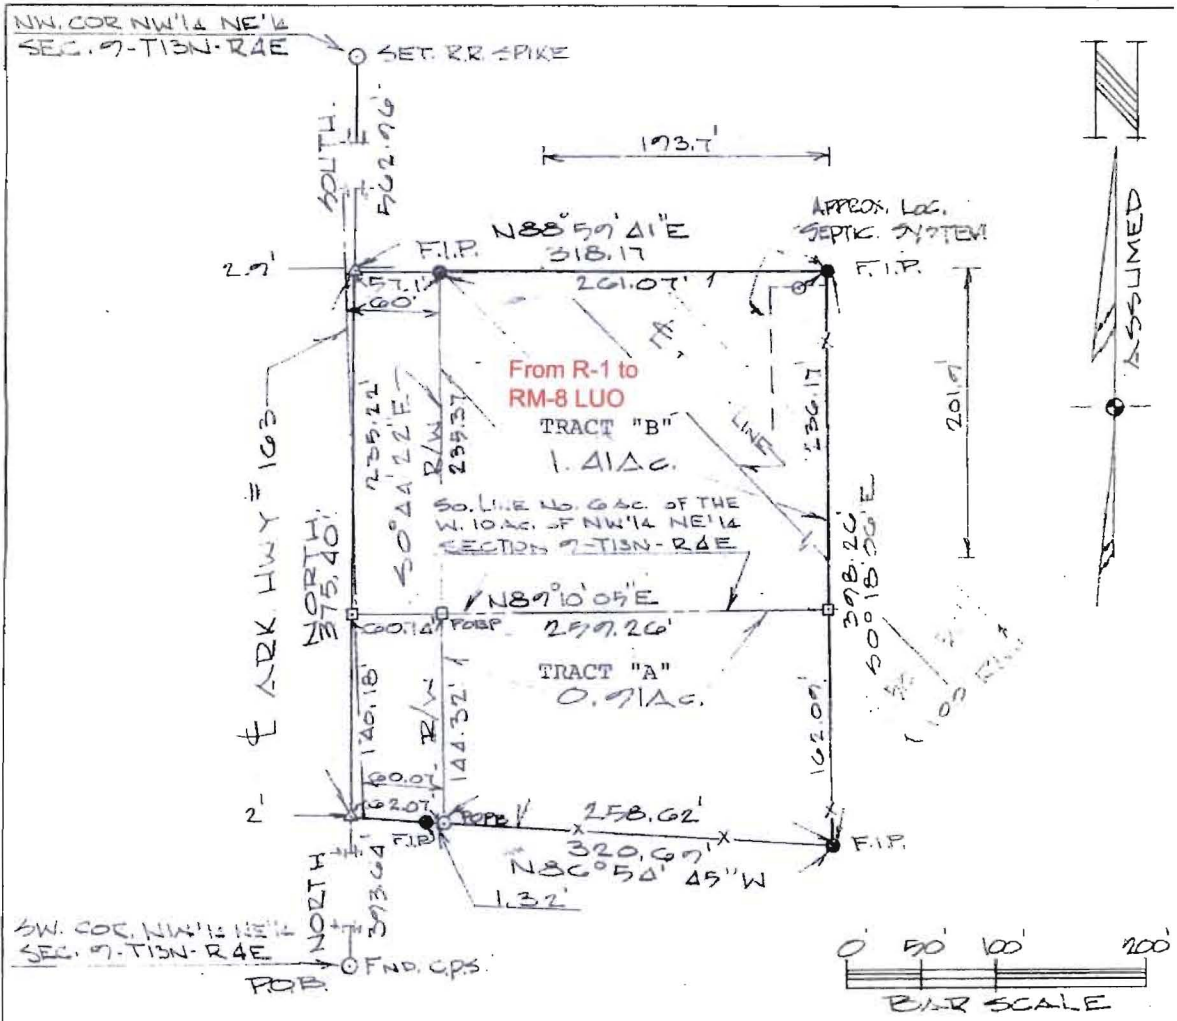 NW. COR NW'¼ NE'¼
SEC. 9-T13N-R4E
SET. R.R. SPIKE
SOUTH.
562.96'
193.7'
N
ASSUMED
APPROX. LOC.
SEPTIC. SYSTEM
N88°59'41"E
318.17
F.I.P.
F.I.P.
2.9'
57.1'
261.07'
60'
From R-1 to
RM-8 LUO
TRACT "B"
1.41Ac.
LINE
235.22'
S0°44'22"E
R/W
235.37
236.17'
201.9'
℄ ARK HWY # 163
NORTH
375.40'
SO. LINE NO. 6 AC. OF THE
W. 10 AC. OF NW'¼ NE'¼
SECTION 9-T13N-R4E
N89°10'05"E
60.14'
POBP
259.26'
398.26'
S0°18'36"E
TRACT "A"
0.91Ac.
140.18'
R/W
144.32'
162.09'
60.07'
62.07'
2'
F.I.P.
258.62'
320.69'
N86°54'45"W
F.I.P.
1.32'
NORTH
393.64'
SW. COR. NW'¼ NE'¼
SEC. 9-T13N-R4E
FND. C.P.S.
P.O.B.
0' 50' 100' 200'
BAR SCALE